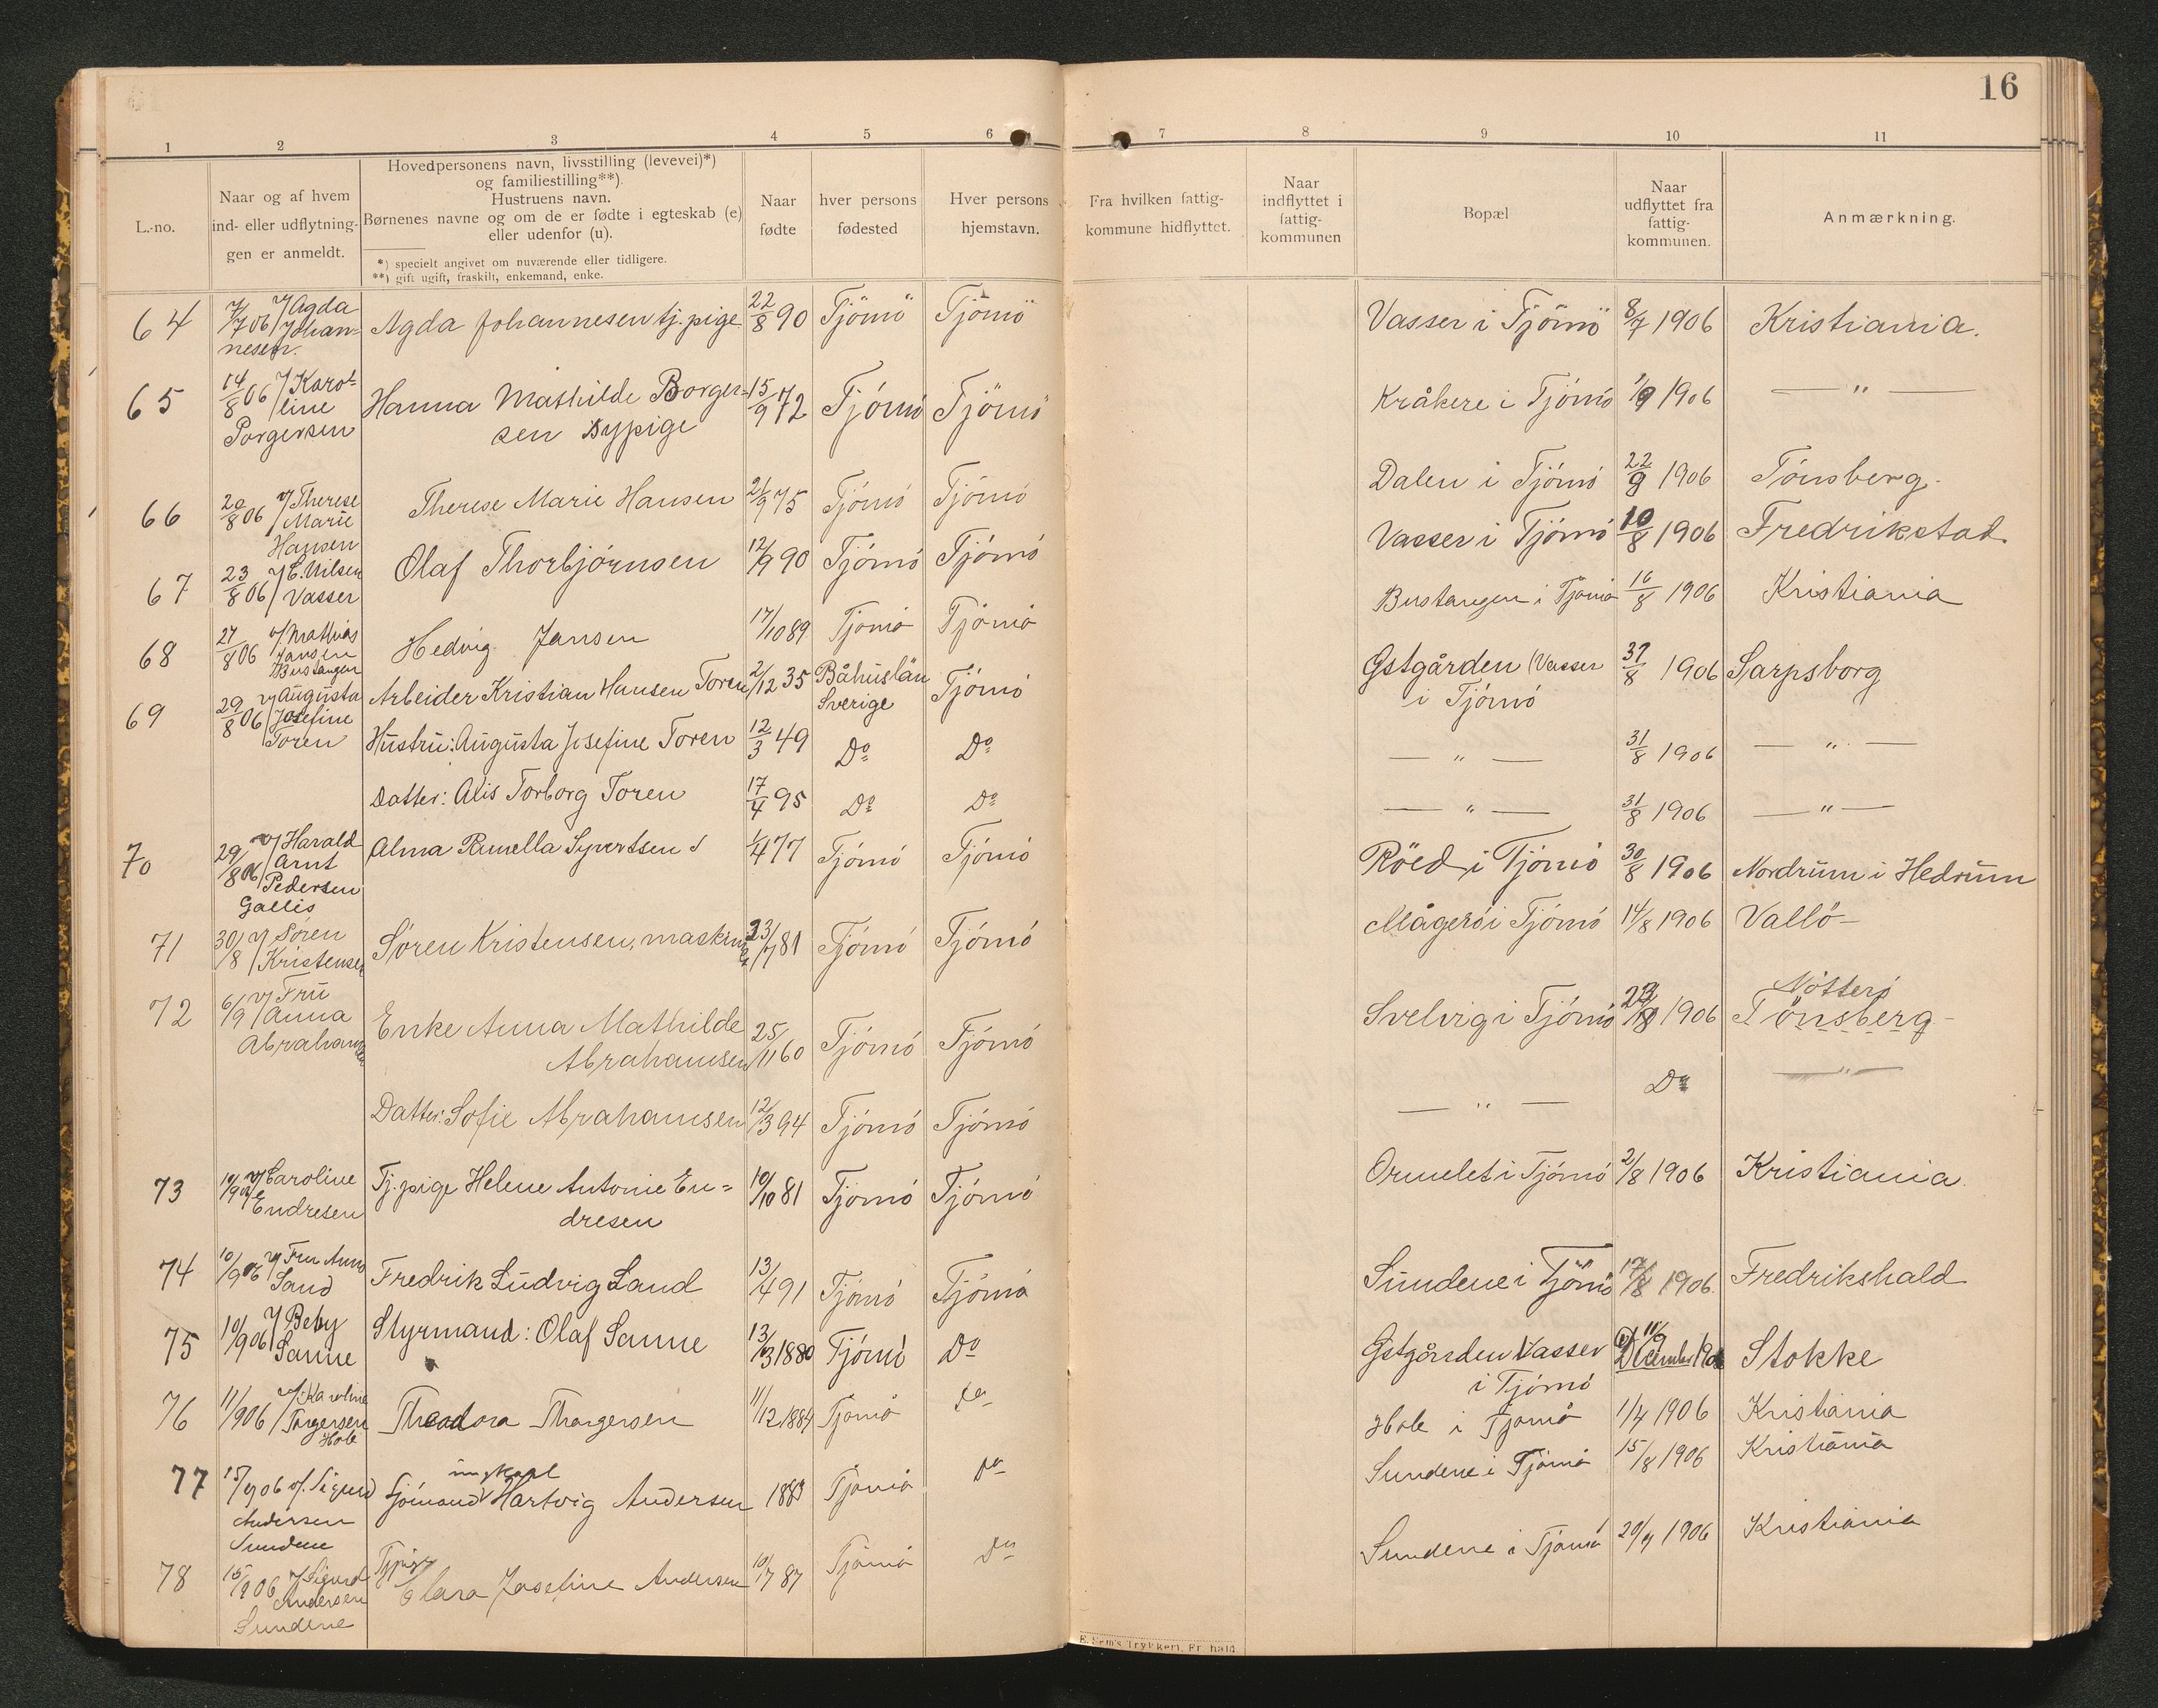 16
1 2 3 4 5 6 7 8 9 10 11
L.-no.
Naar og af hvem
ind- eller udflytnin-
gen er anmeldt.
Hovedpersonens navn, livsstilling (levevei)*)
og familiestilling**).
Hustruens navn.
Børnenes navne og om de er fødte i egteskab (e)
eller udenfor (u).
*) specielt angivet om nuværende eller tidligere.
**) gift ugift, fraskilt, enkemand, enke.
Naar
fødte
hver persons
fødested
Hver persons
hjemstavn.
Fra hvilken fattig-
kommune hidflyttet.
Naar
indflyttet i
fattig-
kommunen
Bopæl
Naar
udflyttet fra
fattig-
kommunen.
Anmærkning.
64 7/7 06 v/ Agda Johan=
nesen. Agda Johannesen tj.pige 22/8 90 Tjömö Tjömö Vasser i Tjömö 8/7 1906 Kristiania.
65 14/8 06 v/ Karo=
line
Borgersen Hanna Mathilde Borger=
sen Sypige 15/9 72 Tjómó Tjömö Kråkere i Tjómó 1/9 1906 — " —
66 20/8 06 v/ Therese
Marie
Hansen Therese Marie Hansen 21/9 75 Tjómó Tjómó Dalen i Tjómó 22/9 1906 Tónsberg.
67 23/8 06 v/ C. Nilsen
Vasser Olaf Thorbjórnsen 12/9 90 Tjómó Tjómó Vasser i Tjómó 10/8 1906 Fredrikstad
68 27/8 06 v/ Mathias
Jansen
Bustangen Hedvig Jansen 17/10 89 Tjómó Tjómó Bustangen i Tjómó 16/8 1906 Kristiania
69 29/8 06 v/ Augusta
Josefine
Toren Arbeider Kristian Hansen Toren 2/12 35 Båhuslän
Sverige Tjómó Gstgården (Vasser
i Tjómó 31/8 1906 Sarpsborg
Hustru: Augusta Josefine Toren 12/3 49 Do Do — " — 31/8 1906 — " —
Datter: Alis Torborg Toren 17/4 95 Do Do — " — 31/8 1906 — " —
70 29/8 06 v/ Harald
Arnt
Pedersen
Gallis Alma Syvertsen 1/4 77 Tjómó Tjómó Röed i Tjómó 30/8 1906 Nordrum i Hedrum
71 30/8 v/ Sóren
Kristensen Sóren Kristensen, maskin 23/7 81 Tjómó Tjómó Mågeró i Tjómó 14/8 1906 Valló —
72 6/9 v/ Fru
Anna
Abrahamsen Enke Anna Mathilde
Abrahamsen 25/11 60 Tjómó Tjómó Svelvig i Tjómó 1906 Nótteró
Tönsberg —
Datter: Sofie Abrahamsen 12/3 94 Tjómó Tjómó — " — Do — " —
73 10/9 06 v/ Caroline
Endresen Tj.pige Helene Antonie En=
dresen 10/10 81 Tjómó Tjómó Ormelet i Tjómó 2/8 1906 Kristiania.
74 10/9 06 v/ Fru Anna
Sand Fredrik Ludvig Sand 13/4 91 Tjómó Tjómó Sundene i Tjömö 17/8 1906. Fredrikshald
75 10/9 06 v/ Beby
Sanne Styrmand: Olaf Sanne 13/3 1880 Tjómó Do Gstgården Vasser
i Tjómó 11/9 December 1906 Stokke
76 11/9 06 v/ Karoline
Torgersen
Hole Theodora Thorgersen 11/12 1884 Tjómó Do Hole i Tjómó 1/4 1906 Kristiania
77 15/9 06 v/. Sigurd
Andersen
Sundene Sjómand ungkarl Hartvig Andersen 1883 Tjómó Do Sundene i Tjómó 15/8 1906 Kristiania
78 15/9 06 v/ Sigurd
Andersen
Sundene Tjpige
Clara Josefine Andersen 10/7 87 Tjómó Do Sundene i Tjómó 20/9 1906 Kristiania
E. Sem's Trykkeri, Fr.hald